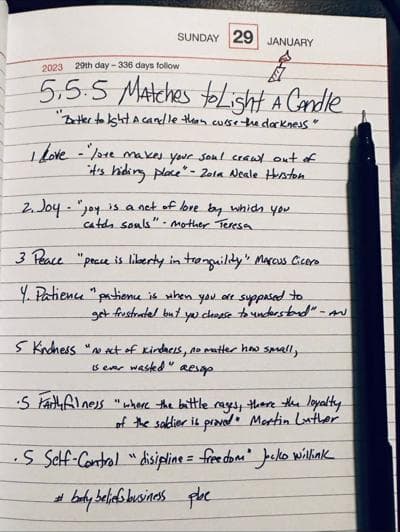 SUNDAY 29 JANUARY
2023 29th day – 336 days follow
5.5.5 Matches to Light A Candle
"Better to light a candle than curse the darkness"
1. Love - "love makes your soul crawl out of
it's hiding place" - Zora Neale Hurston
2. Joy - "joy is a net of love by which you
catch souls" - Mother Teresa
3 Peace "peace is liberty in tranquility" Marcus Cicero
4. Patience "patience is when you are supposed to
get frustrated but you choose to understand" -
5 Kindness "no act of kindness, no matter how small,
is ever wasted" aesop
.5 Faithfulness "where the battle rages, there the loyalty
of the soldier is proved" Martin Luther
.5 Self-Control "disipline = freedom" Jocko Willink
# bodybeliefsbusiness